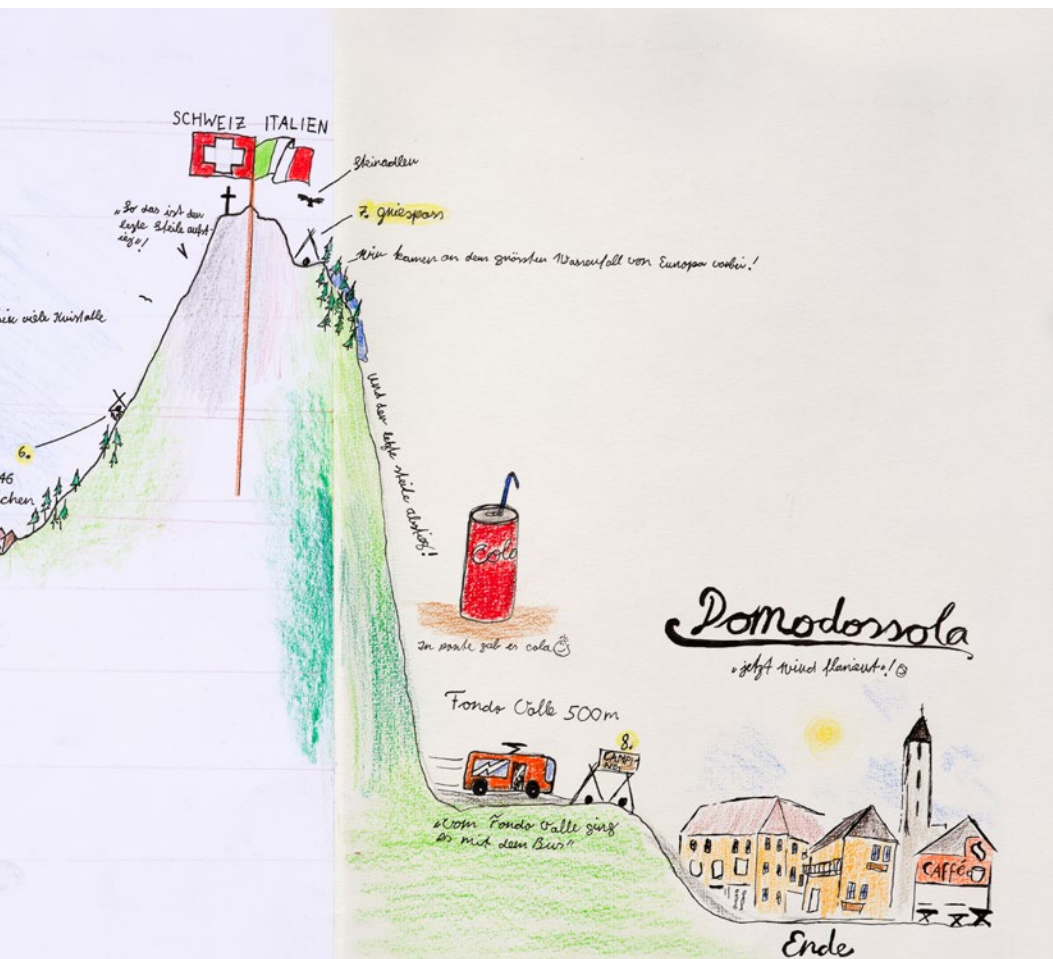 SCHWEIZ ITALIEN
Steinadler
7. griespass
„So das ist der
lezte Steile aufst-
ieg"!
Wir kamen an dem grössten Wasserfall von Europa vorbei!
viele Kristalle
6.
46
chen
und der letzte steile abstieg!
Cola
In ponte gab es cola
Domodossola
„jetzt wird flaniert"!
Fondo Valle 500m
8.
CAMPI-
NG
„vom Fondo Valle ging
es mit dem Bus"
CAFFÉ
Ende